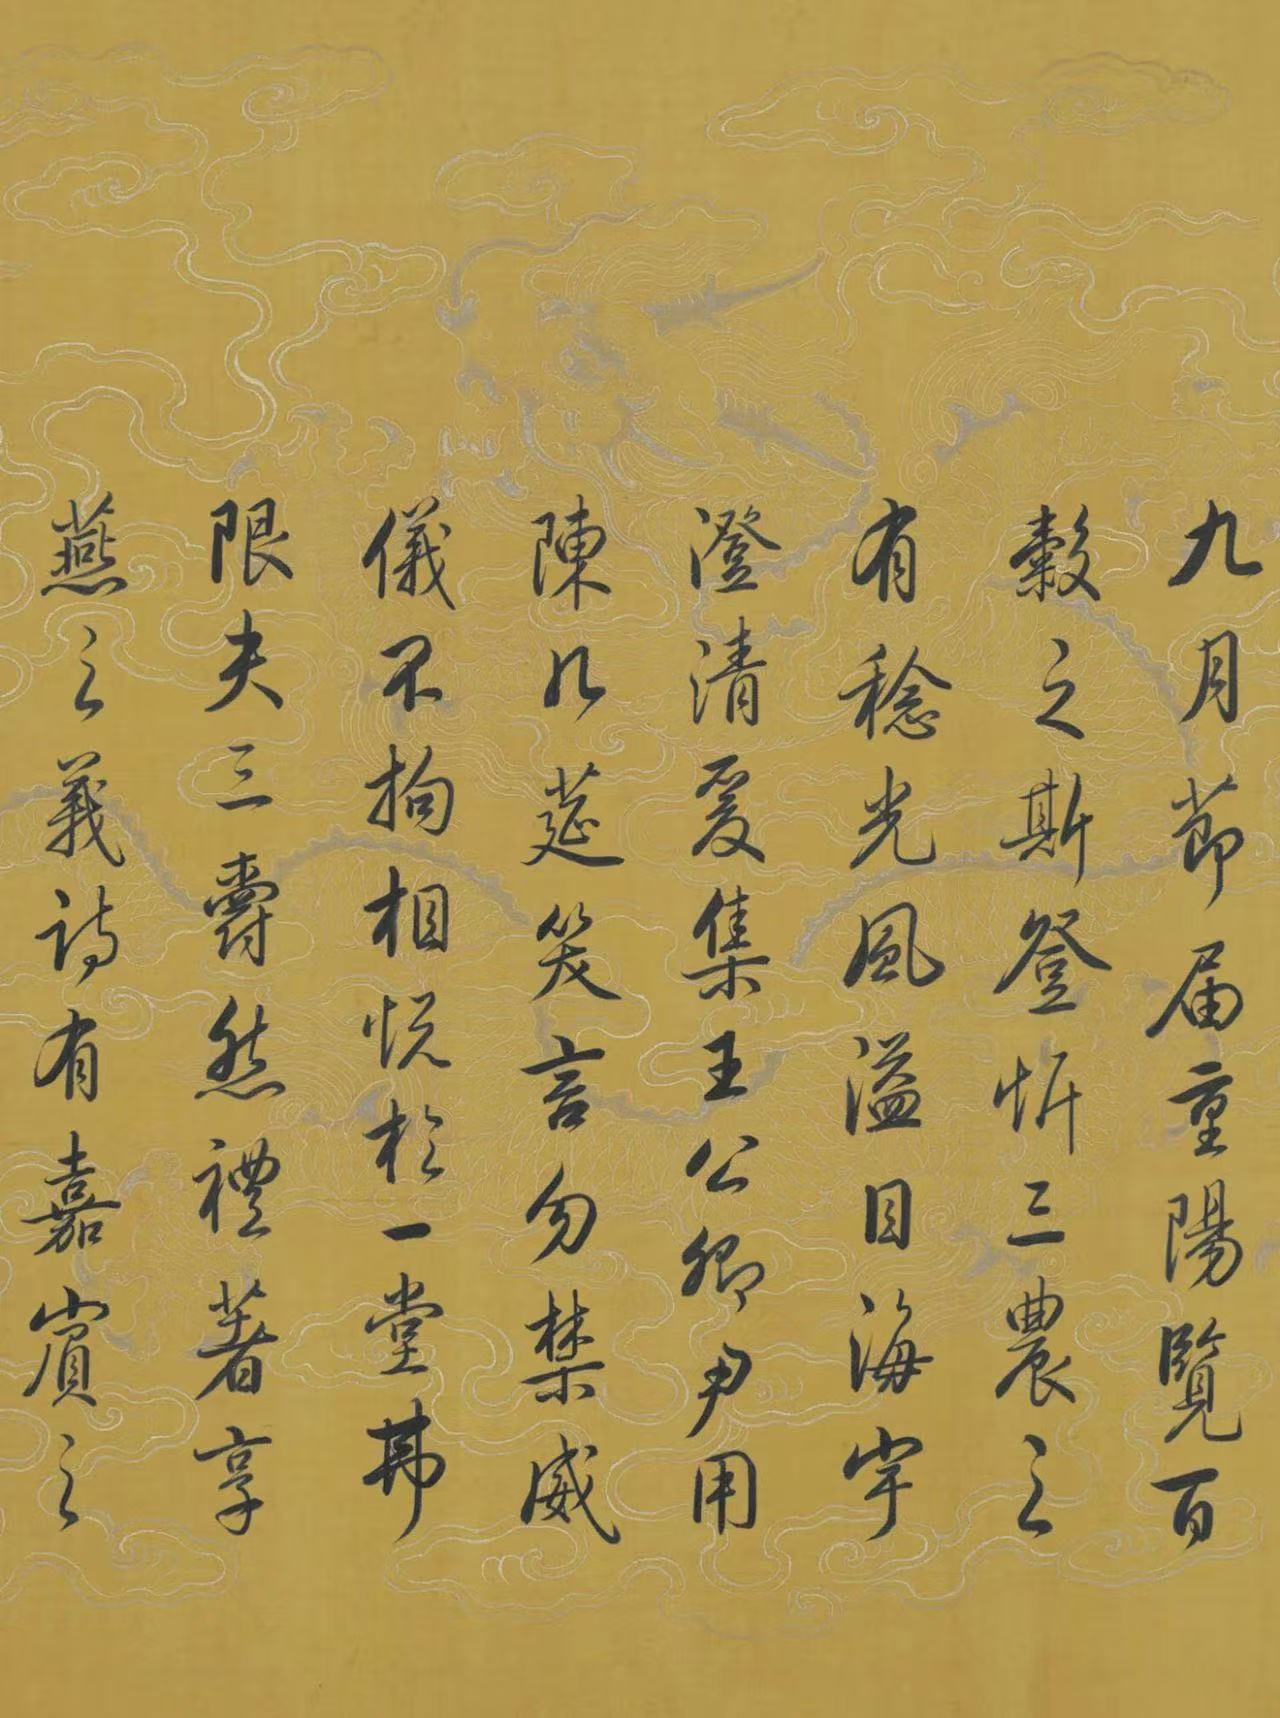 九月節届重陽覽百
穀之斯登忻三農之
有稔光風溢目海宇
澄清爰集王公卿尹用
陳几莚笑言勿禁威
儀不拘相悦於一堂弗
限夫三爵然禮著享
燕之義詩有嘉賓之